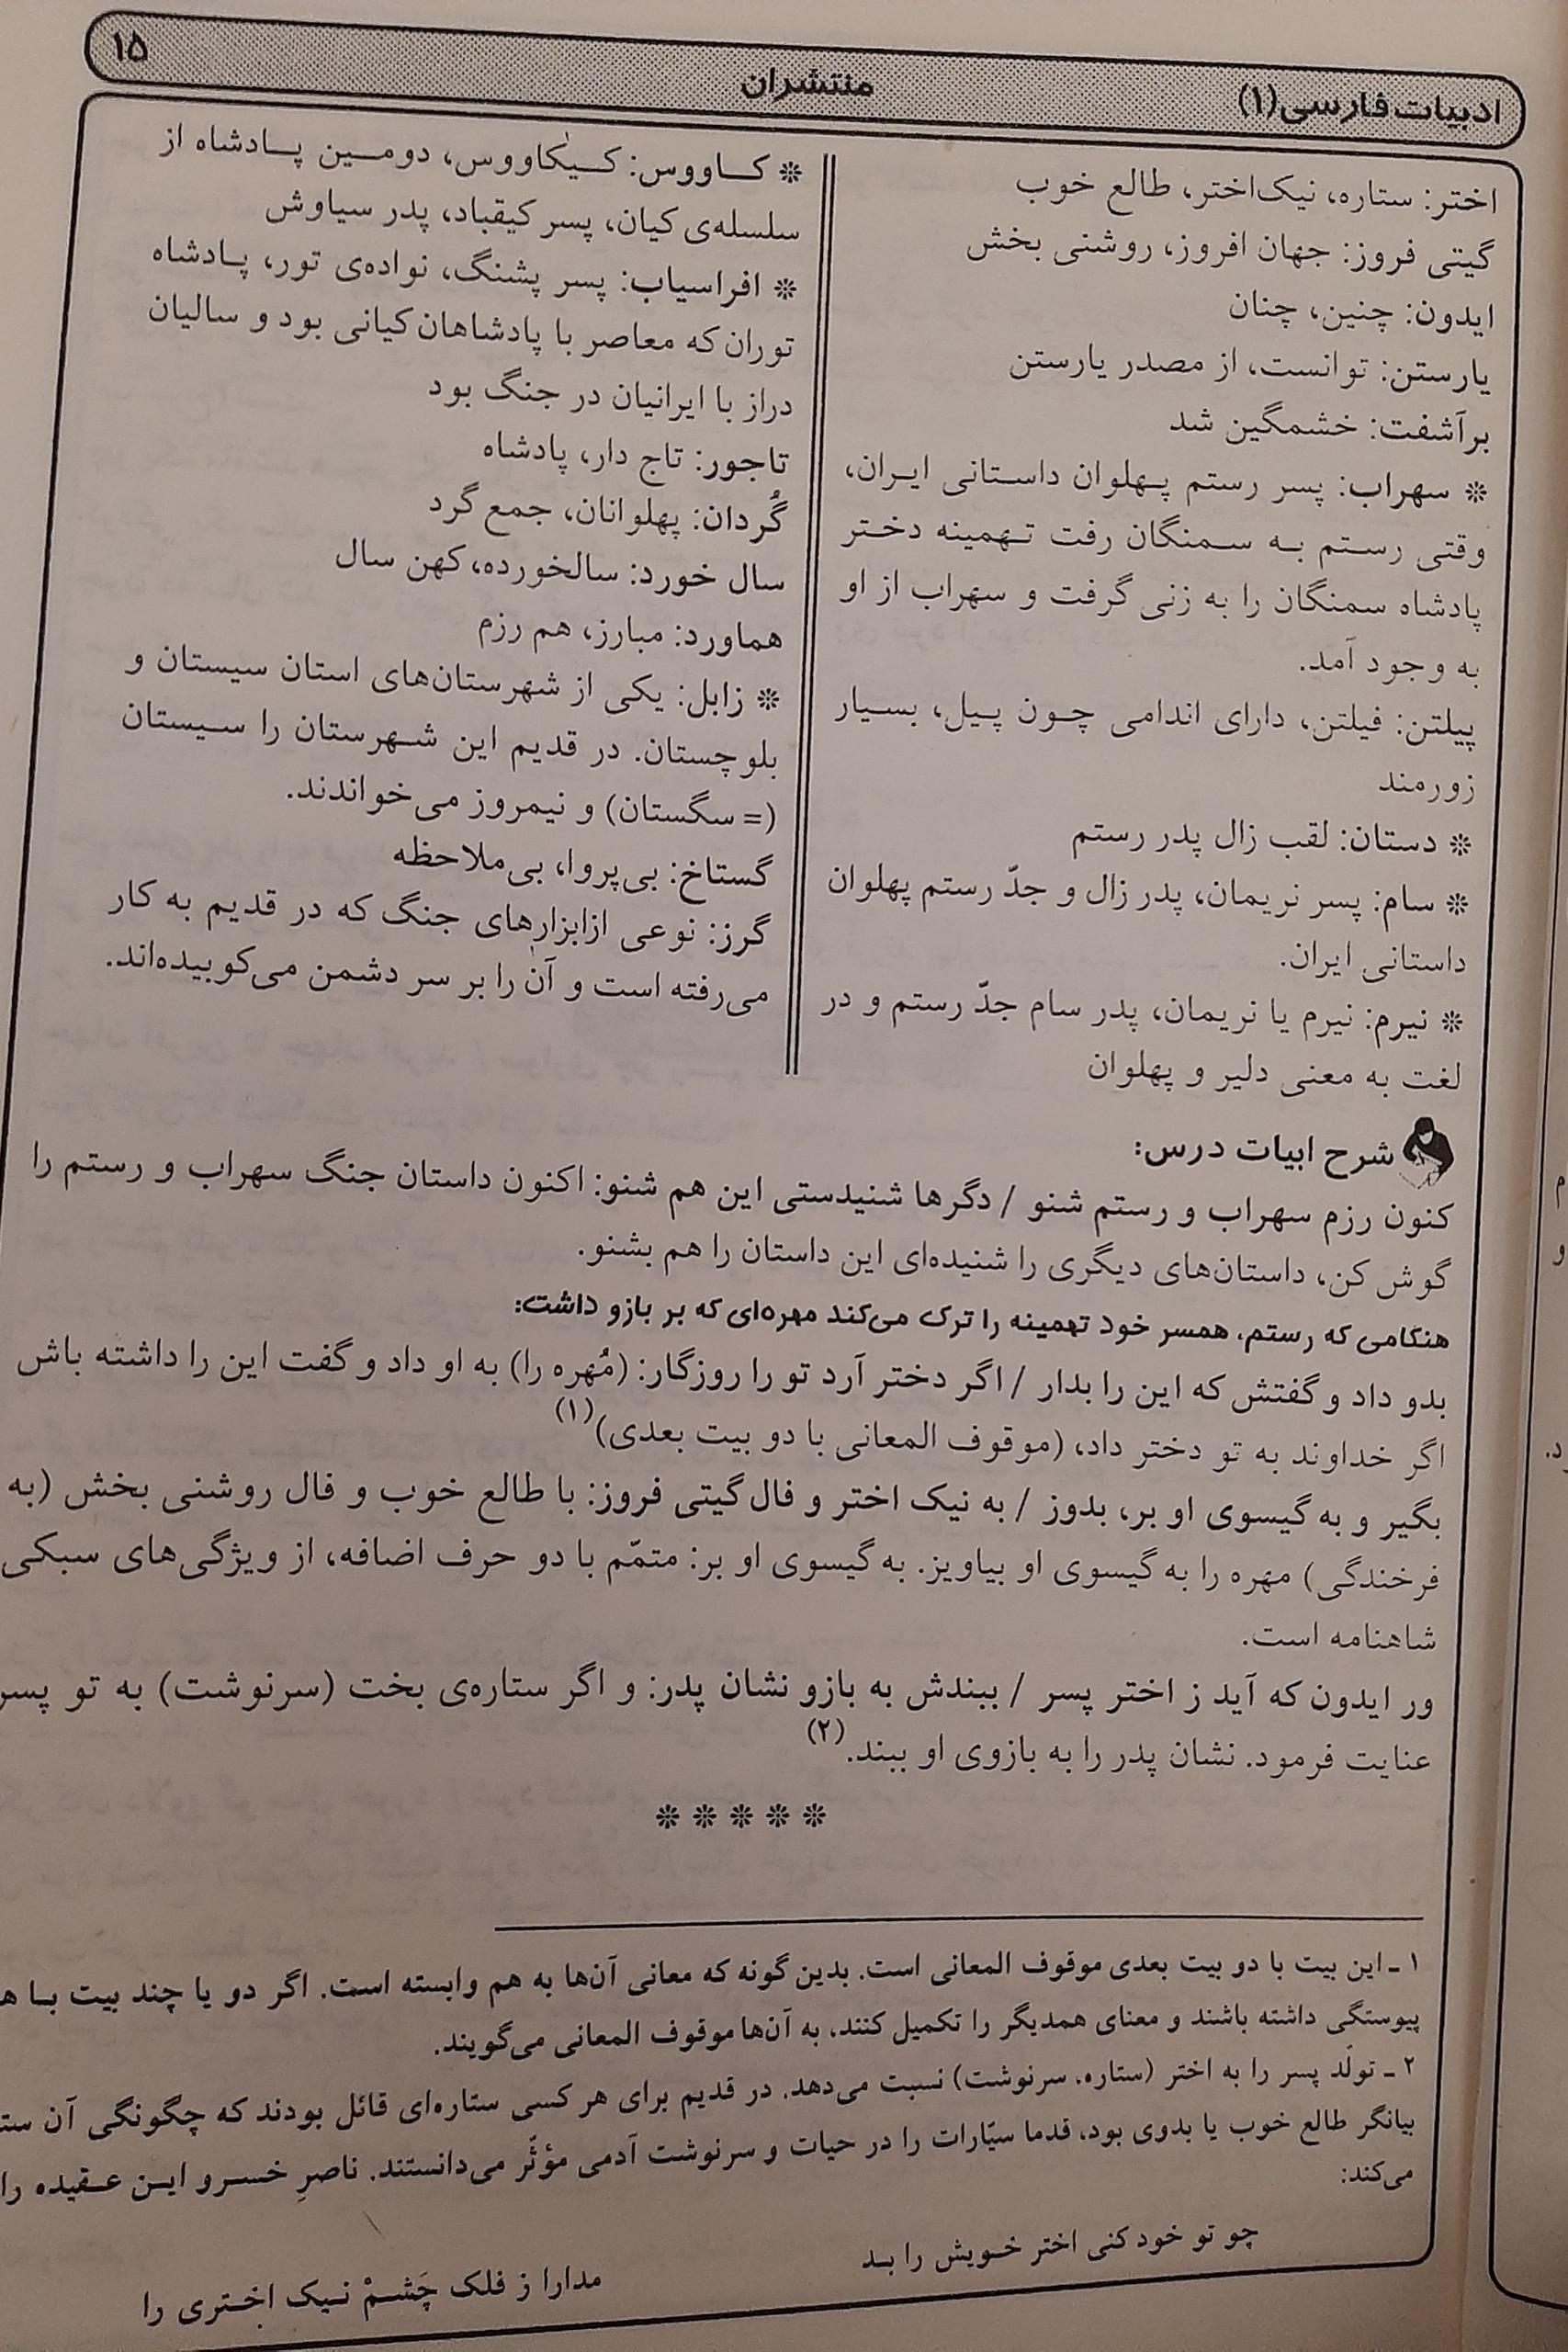 ادبیات فارسی(۱)
منتشران
۱۵
اختر: ستاره، نیک‌اختر، طالع خوب
گیتی فروز: جهان افروز، روشنی بخش
ایدون: چنین، چنان
یارستن: توانست، از مصدر یارستن
برآشفت: خشمگین شد
❊ سهراب: پسر رستم پهلوان داستانی ایران،
وقتی رستم به سمنگان رفت تهمینه دختر
پادشاه سمنگان را به زنی گرفت و سهراب از او
به وجود آمد.
پیلتن: فیلتن، دارای اندامی چون پیل، بسیار
زورمند
❊ دستان: لقب زال پدر رستم
❊ سام: پسر نریمان، پدر زال و جدّ رستم پهلوان
داستانی ایران.
❊ نیرم: نیرم یا نریمان، پدر سام جدّ رستم و در
لغت به معنی دلیر و پهلوان
❊ کاووس: کیکاووس، دومین پادشاه از
سلسله‌ی کیان، پسر کیقباد، پدر سیاوش
❊ افراسیاب: پسر پشنگ، نواده‌ی تور، پادشاه
توران که معاصر با پادشاهان کیانی بود و سالیان
دراز با ایرانیان در جنگ بود
تاجور: تاج دار، پادشاه
گُردان: پهلوانان، جمع گرد
سال خورد: سالخورده، کهن سال
هماورد: مبارز، هم رزم
❊ زابل: یکی از شهرستان‌های استان سیستان و
بلوچستان. در قدیم این شهرستان را سیستان
(= سگستان) و نیمروز می‌خواندند.
گستاخ: بی‌پروا، بی‌ملاحظه
گرز: نوعی ازابزارهای جنگ که در قدیم به کار
می‌رفته است و آن را بر سر دشمن می‌کوبیده‌اند.
شرح ابیات درس:
کنون رزم سهراب و رستم شنو / دگرها شنیدستی این هم شنو: اکنون داستان جنگ سهراب و رستم را
گوش کن، داستان‌های دیگری را شنیده‌ای این داستان را هم بشنو.
هنگامی که رستم، همسر خود تهمینه را ترک می‌کند مهره‌ای که بر بازو داشت:
بدو داد و گفتش که این را بدار / اگر دختر آرد تو را روزگار: (مُهره را) به او داد و گفت این را داشته باش
اگر خداوند به تو دختر داد، (موقوف المعانی با دو بیت بعدی)(۱)
بگیر و به گیسوی او بر، بدوز / به نیک اختر و فال گیتی فروز: با طالع خوب و فال روشنی بخش (به
فرخندگی) مهره را به گیسوی او بیاویز. به گیسوی او بر: متمّم با دو حرف اضافه، از ویژگی‌های سبکی
شاهنامه است.
ور ایدون که آید ز اختر پسر / ببندش به بازو نشان پدر: و اگر ستاره‌ی بخت (سرنوشت) به تو پسر
عنایت فرمود. نشان پدر را به بازوی او ببند.(۲)
❊ ❊ ❊ ❊ ❊
۱ ـ این بیت با دو بیت بعدی موقوف المعانی است. بدین گونه که معانی آن‌ها به هم وابسته است. اگر دو یا چند بیت با
پیوستگی داشته باشند و معنای همدیگر را تکمیل کنند، به آن‌ها موقوف المعانی می‌گویند.
۲ ـ تولّد پسر را به اختر (ستاره، سرنوشت) نسبت می‌دهد. در قدیم برای هر کسی ستاره‌ای قائل بودند که چگونگی آن
بیانگر طالع خوب یا بدوی بود، قدما سیّارات را در حیات و سرنوشت آدمی مؤثّر می‌دانستند. ناصرِ خسرو این عقیده را
می‌کند:
چو تو خود کنی اختر خویش را بد
مدارا ز فلک چَشمْ نیک اختری را